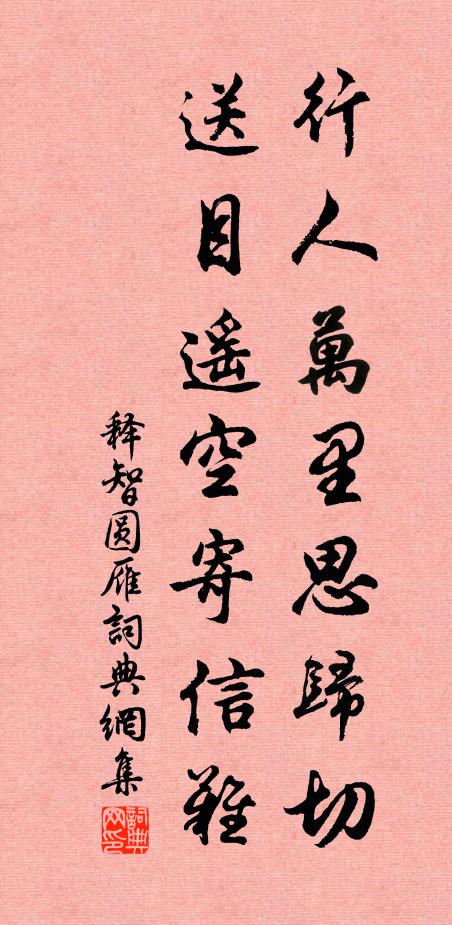 行人萬里思歸切
送目遥空寄信難
释智圆雁詞典網集
詞典网印